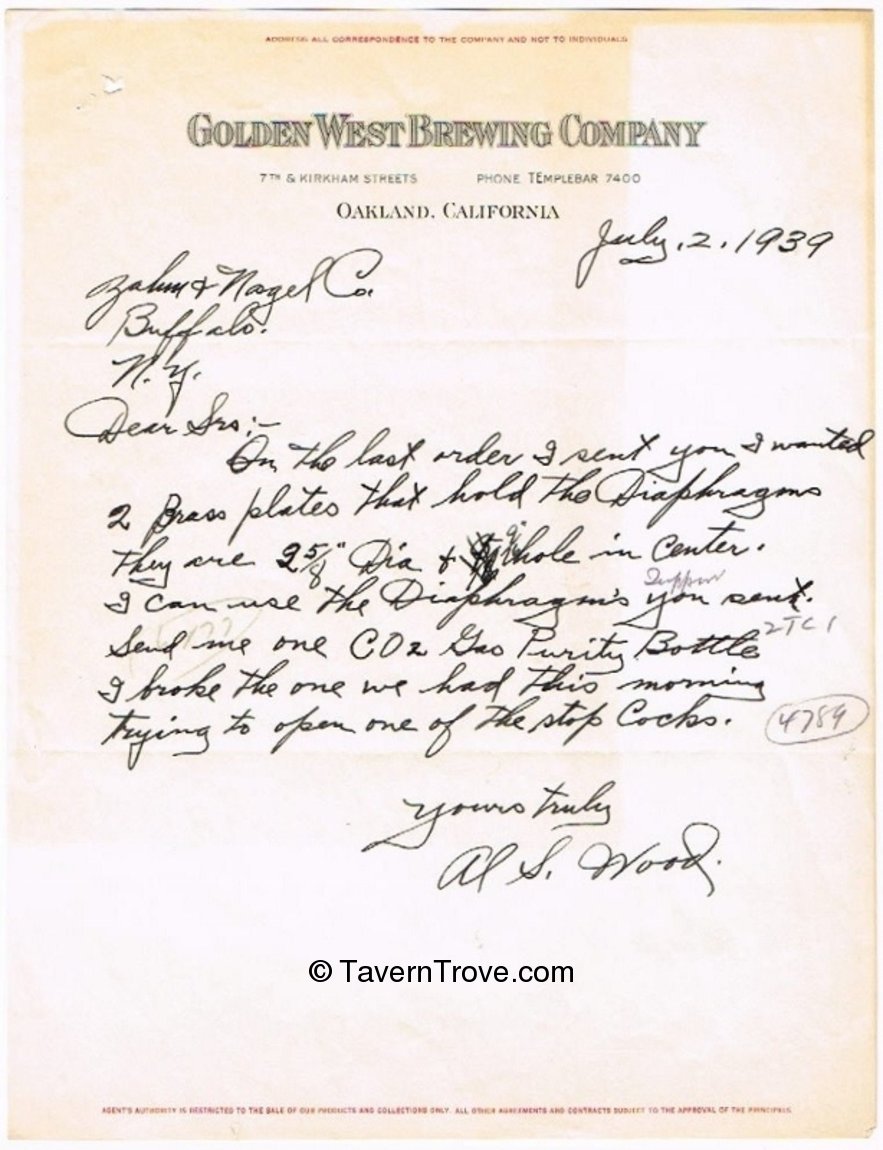 ADDRESS ALL CORRESPONDENCE TO THE COMPANY AND NOT TO INDIVIDUALS
GOLDEN WEST BREWING COMPANY
7TH & KIRKHAM STREETS PHONE TEMPLEBAR 7400
OAKLAND, CALIFORNIA
July, 2, 1939
Zahm & Nagel Co.
Buffalo.
N.Y.
Dear Srs:-
On the last order I sent you I wanted
2 Brass plates that hold the Diaphragms
they are 2 5/8" Dia & hole in Center.
I can use the Diaphragms you sent.
Send me one CO2 Gas Purity Bottle
2TC1
I broke the one we had this morning
trying to open one of the stop Cocks.
4789
Yours truly
Al S. Wood.
© TavernTrove.com
AGENT'S AUTHORITY IS RESTRICTED TO THE SALE OF OUR PRODUCTS AND COLLECTIONS ONLY. ALL OTHER AGREEMENTS AND CONTRACTS SUBJECT TO THE APPROVAL OF THE PRINCIPALS.